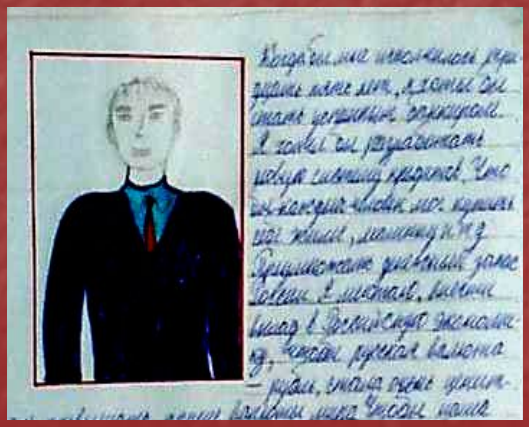 Когда бы мне исполнилось трид-
цать пять лет, я хотел бы
стать успешным банкиром.
Я хотел бы разработать
новую систему кредитов. Что
бы каждый человек мог купить
своё жильё, машину и т д
Приумножать денежный запас
России Я мечтаю, внести
вклад в Российскую экономи-
ку, чтобы русская валюта
– рубль, стала очень ценит-
валюты мира Чтобы наша